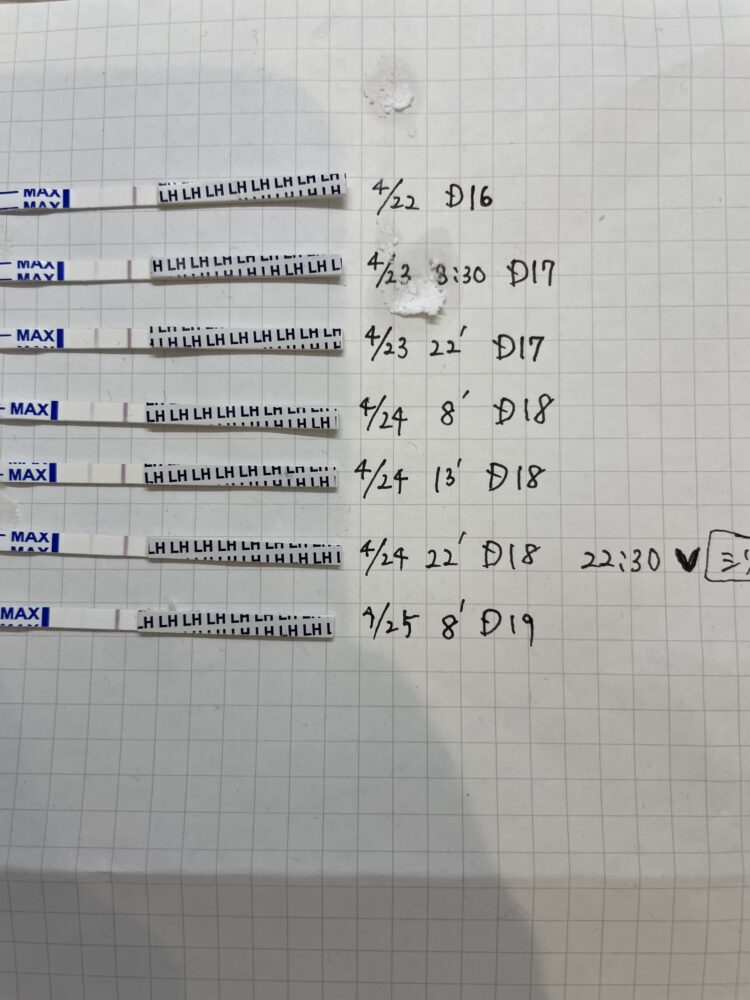 MAX MAX LH LH LH LH LH LH LH LH 4/22 D16
MAX MAX H LH LH LH LH LH LH LH L 4/23 8:30 D17
MAX LH LH LH LH LH LH LH LH 4/23 22' D17
MAX LH LH LH LH LH LH LH LH 4/24 8' D18
MAX LH LH LH LH LH LH LH LH 4/24 13' D18
MAX MAX LH LH LH LH LH LH LH LH 4/24 22' D18 22:30
MAX LH LH LH LH LH LH LH LH 4/25 8' D19